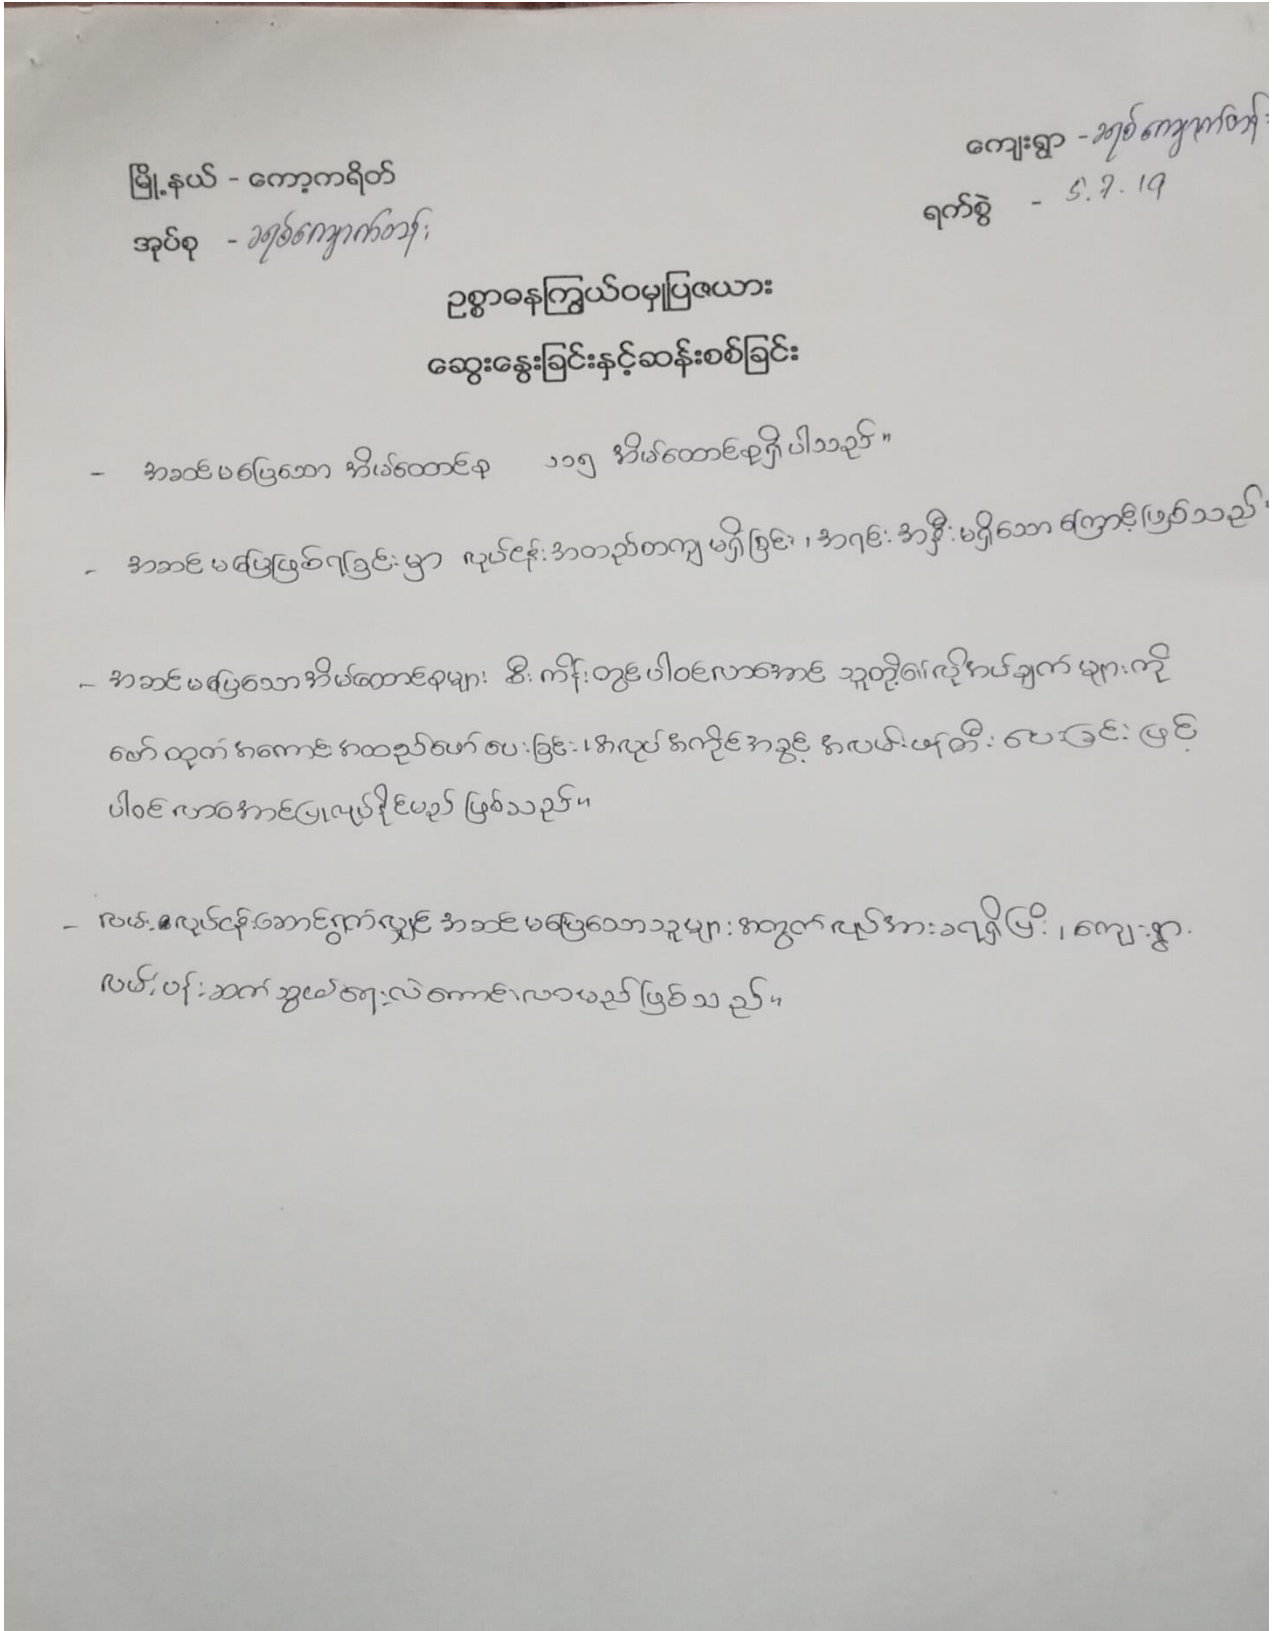 ကျေးရွာ - ခရစ်ကျောက်တန်း
မြို့နယ် - ကော့ကရိတ်
ရက်စွဲ - 5.7.19
အုပ်စု - ခရစ်ကျောက်တန်း
ဥစ္စာဓနကြွယ်ဝမှုပြဇယား
ဆွေးနွေးခြင်းနှင့်ဆန်းစစ်ခြင်း
- အဆင်မပြေသော အိမ်ထောင်စု ၁၁၅ အိမ်ထောင်စုရှိပါသည်။
- အဆင်မပြေဖြစ်ရခြင်းမှာ လုပ်ငန်းအတည်တကျမရှိခြင်း၊ အရင်းအနှီးမရှိသောကြောင့်ဖြစ်သည်။
- အဆင်မပြေသောအိမ်ထောင်စုများ စီမံကိန်းတွင်ပါဝင်လာအောင် သူတို့၏လိုအပ်ချက်များကို
ဖော်ထုတ်အကောင်အထည်ဖော်ပေးခြင်း၊ အလုပ်အကိုင်အခွင့်အလမ်းဖန်တီးပေးခြင်းဖြင့်
ပါဝင်လာအောင်ပြုလုပ်နိုင်မည်ဖြစ်သည်။
- လမ်းလုပ်ငန်းဆောင်ရွက်လျှင် အဆင်မပြေသောသူများအတွက်လုပ်အားခရရှိပြီး၊ ကျေးရွာ
လမ်းပန်းဆက်သွယ်ရေးလဲကောင်းလာမည်ဖြစ်သည်။